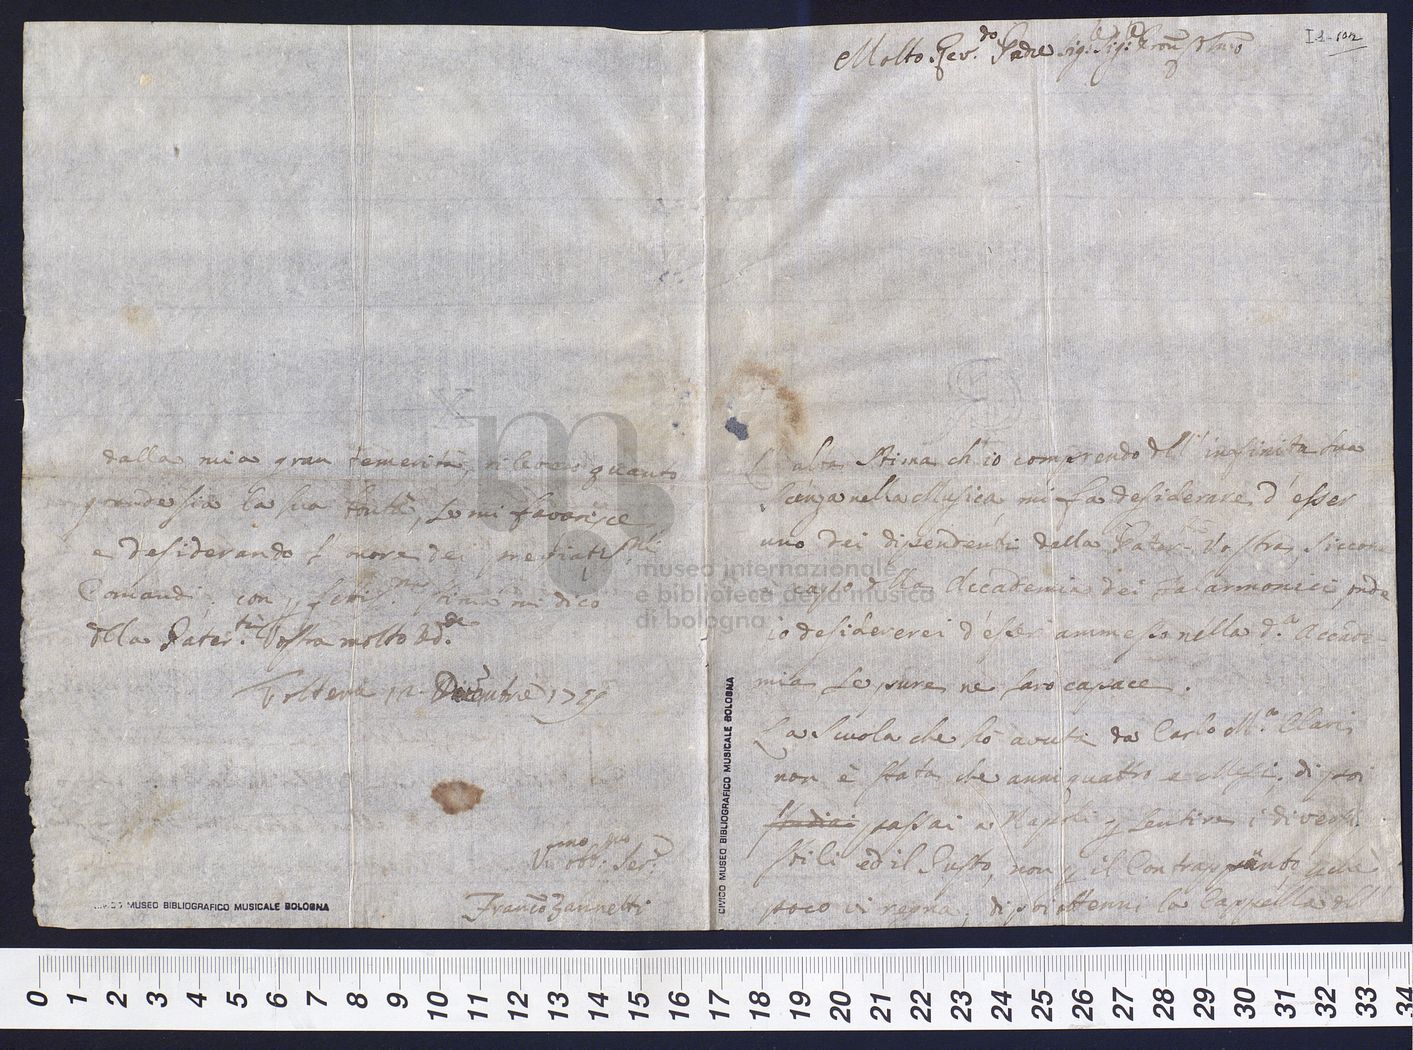 I 1-102
Molto Rev.do Padre Sig.e Sig.e
L'alta stima ch'io comprendo dell'infinita sua
scienza nella Musica mi fa desiderare d'esser
uno dei dipendenti della Pater.tà Vostra, siccome
è capo della Accademia dei Filarmonici, onde
io desidererei d'esser ammesso nella d.a Accade-
mia se pure ne sarò capace.
La scuola che hò avuta da Carlo M.a Clari
non è stata che anni quattro e Mesi, di poi
studiai passai a Napoli p sentire i diversi
stili ed il Gusto, non p il Contrappunto che
poco vi regna, di poi ottenni la Cappella dell'
dalla mia gran temerità, rileverò quanto
grande sia la sua bontà, se mi favorisce
e desiderando l'onore dei pregiatis.mi
Comandi, con p stima mi dico
della Pater.tà Vostra molto Rd.da
Volterra 12 Dicembre 1759
Um.mo obb. Ser.
Franco Zannetti
CIVICO MUSEO BIBLIOGRAFICO MUSICALE BOLOGNA
CIVICO MUSEO BIBLIOGRAFICO MUSICALE BOLOGNA
museo internazionale
e biblioteca della musica
di bologna
0 1 2 3 4 5 6 7 8 9 10 11 12 13 14 15 16 17 18 19 20 21 22 23 24 25 26 27 28 29 30 31 32 33 34